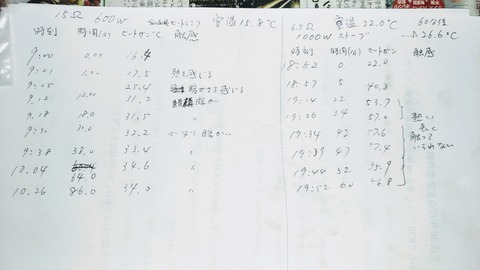 15Ω 600W 室温15.8℃
時刻 時間(分) セートガン℃ 触感
9:00 0.00 16.4
9:01 1.00 17.5 熱を感じる
9:05 25.4 暖かさを感じる
9.12 12.00 31.2 暖か〜
9.18 18.0 31.5 〃
9:30 30.0 32.2 かなり暖か〜
9.38 38.0 33.4 〃
10.04 64.0 34.6 〃
10.26 86.0 34.0 〃
室温22.0℃ 60分後
1000W ストーブ 26.6℃
時刻 時間(分) セートガン 触感
18:52 0 22.0
18:57 5 40.3
19:14 22 53.7
19:26 34 57.0 熱い
19:34 42 57.6 触って
19:39 47 57.4 いられない
19:44 52 55.9
19:52 60 56.8